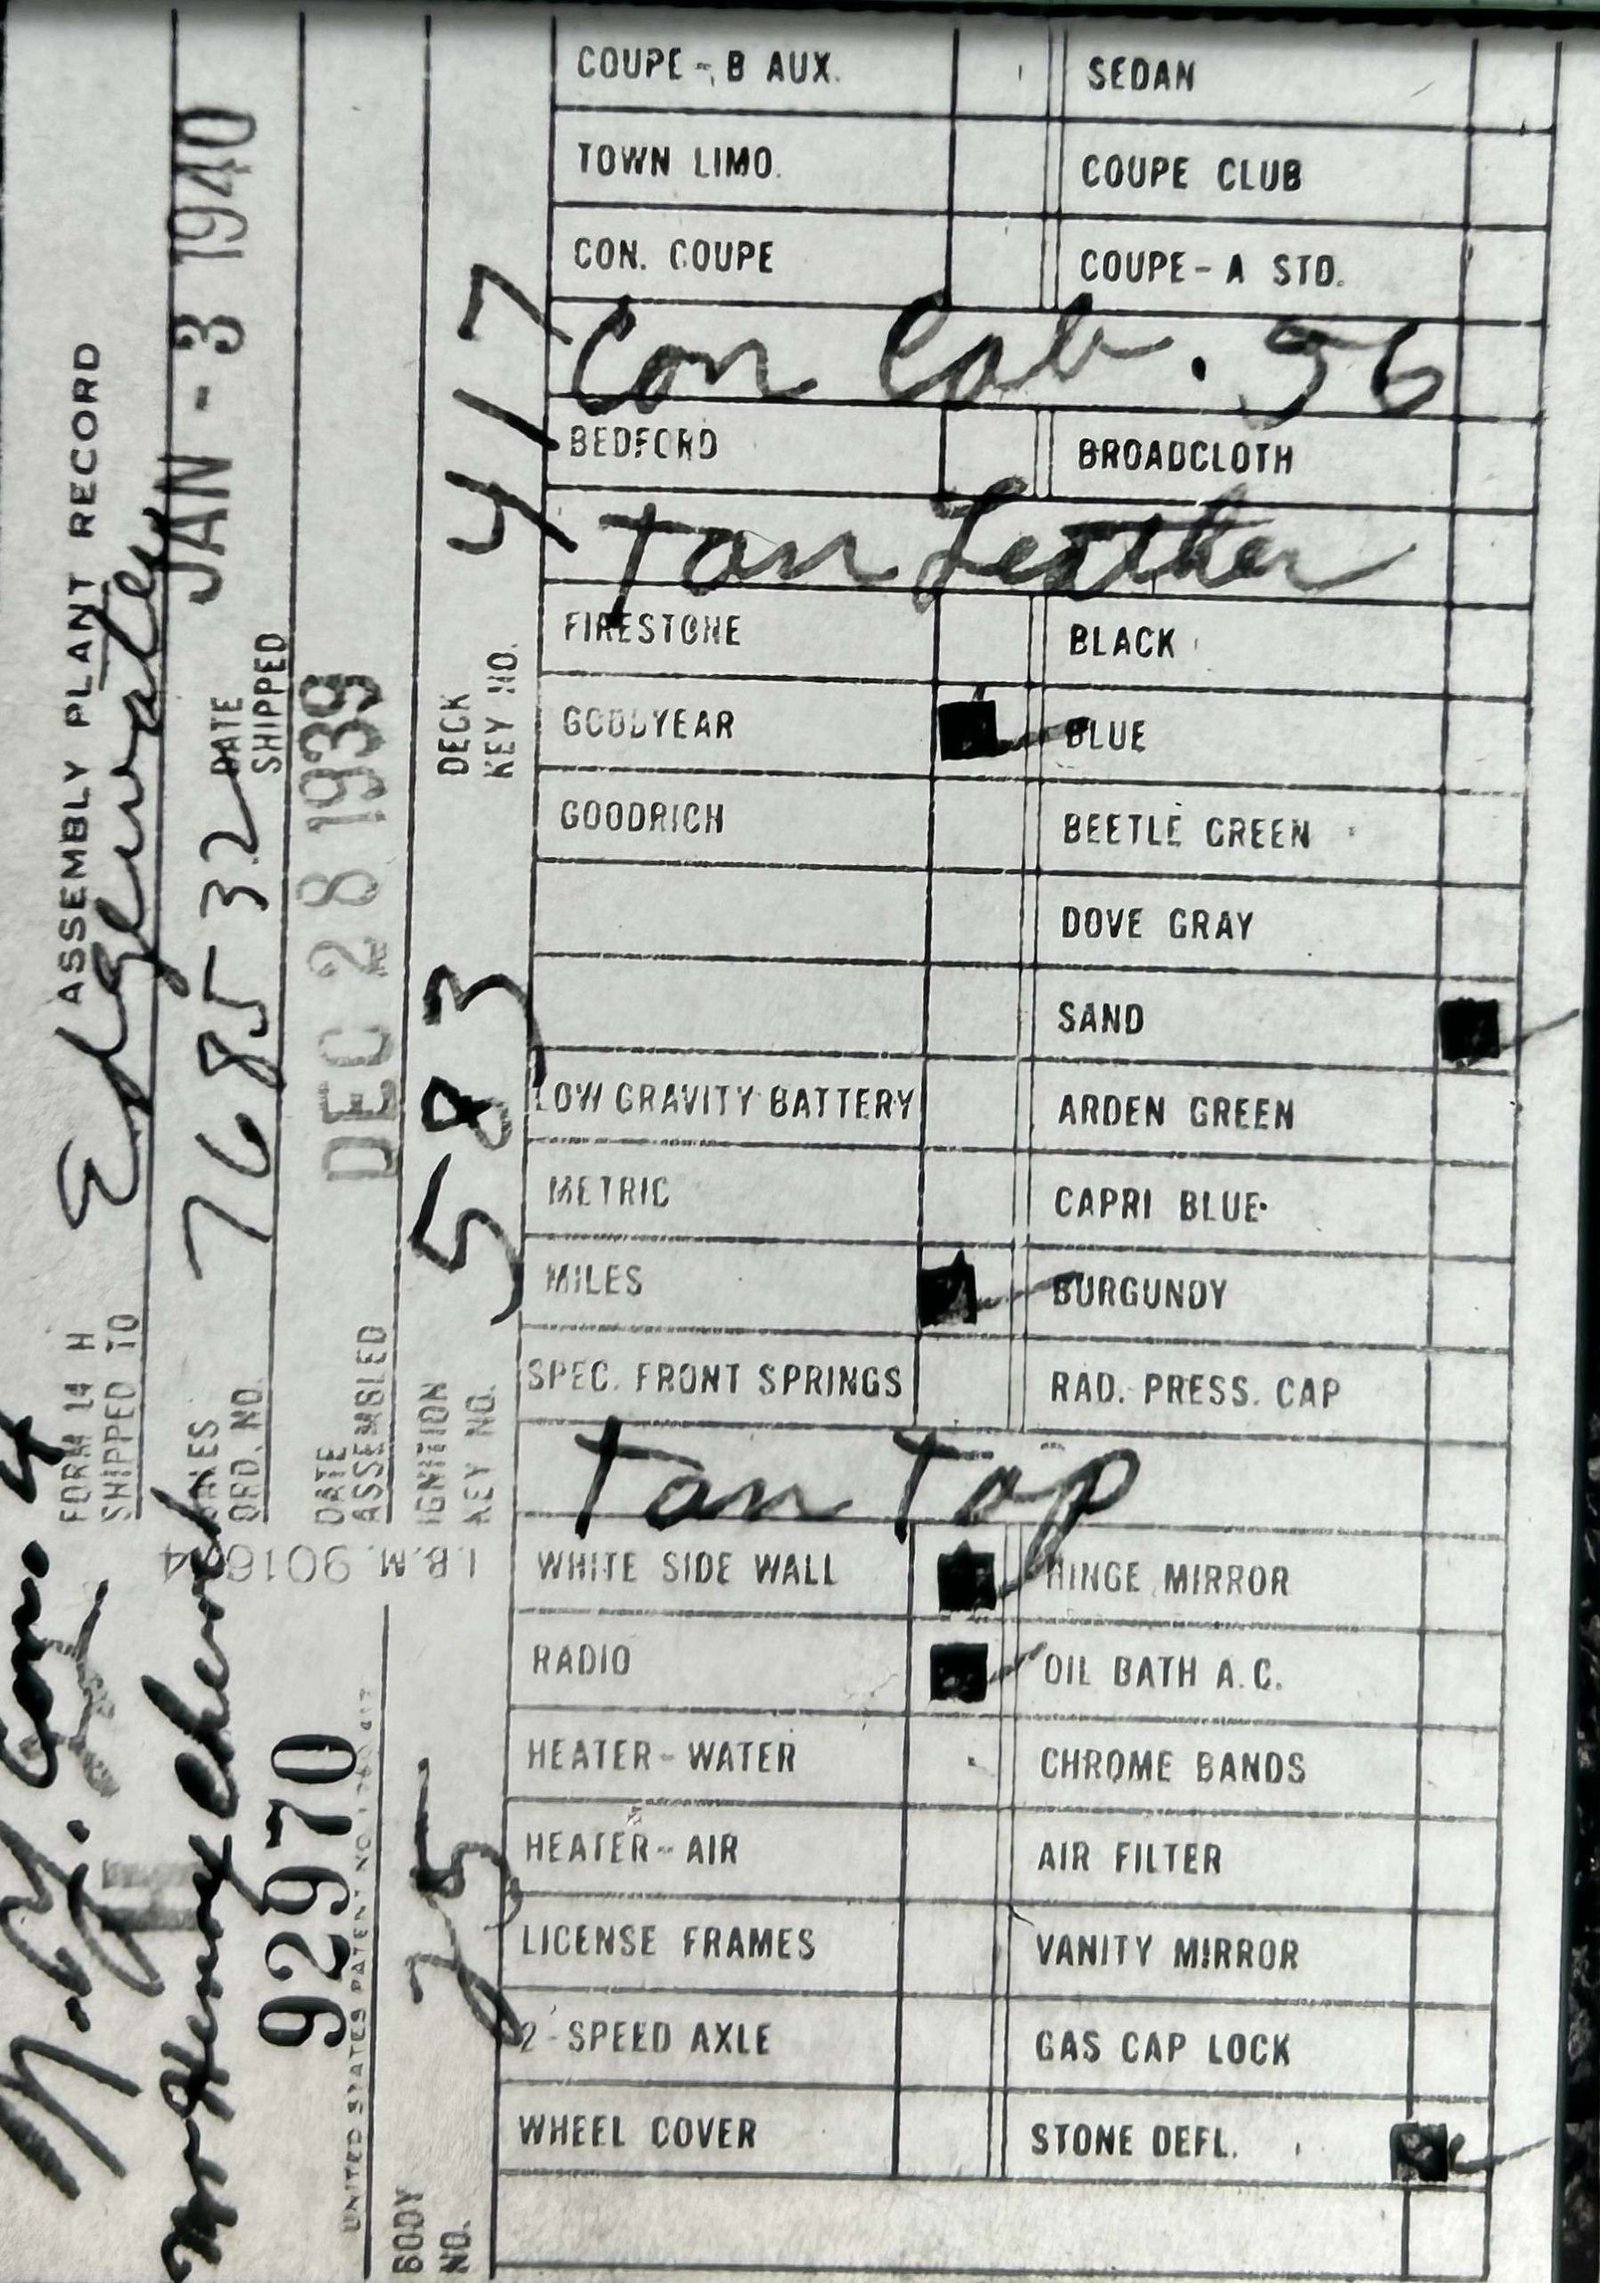 N.Y. Con. 4
Mr Henry
92970
I.B.M. 9016
UNITED STATES PATENT NO.
FORM 14 H ASSEMBLY PLANT RECORD
SHIPPED TO Edgewater
SALES ORD. NO. 768532
DATE SHIPPED JAN - 3 1940
DATE ASSEMBLED DEC 28 1939
IGNITION KEY NO. 583
DECK KEY NO. 417
BODY NO. 25
COUPE - B AUX. SEDAN
TOWN LIMO. COUPE CLUB
CON. COUPE COUPE - A STD.
Con Cab. 56
BEDFORD BROADCLOTH
Tan Leather
FIRESTONE BLACK
GOODYEAR BLUE
GOODRICH BEETLE GREEN
DOVE GRAY
SAND
LOW GRAVITY BATTERY ARDEN GREEN
METRIC CAPRI BLUE
MILES BURGUNDY
SPEC. FRONT SPRINGS RAD. PRESS. CAP
Tan Top
WHITE SIDE WALL HINGE MIRROR
RADIO OIL BATH A.C.
HEATER - WATER CHROME BANDS
HEATER - AIR AIR FILTER
LICENSE FRAMES VANITY MIRROR
2 - SPEED AXLE GAS CAP LOCK
WHEEL COVER STONE DEFL.